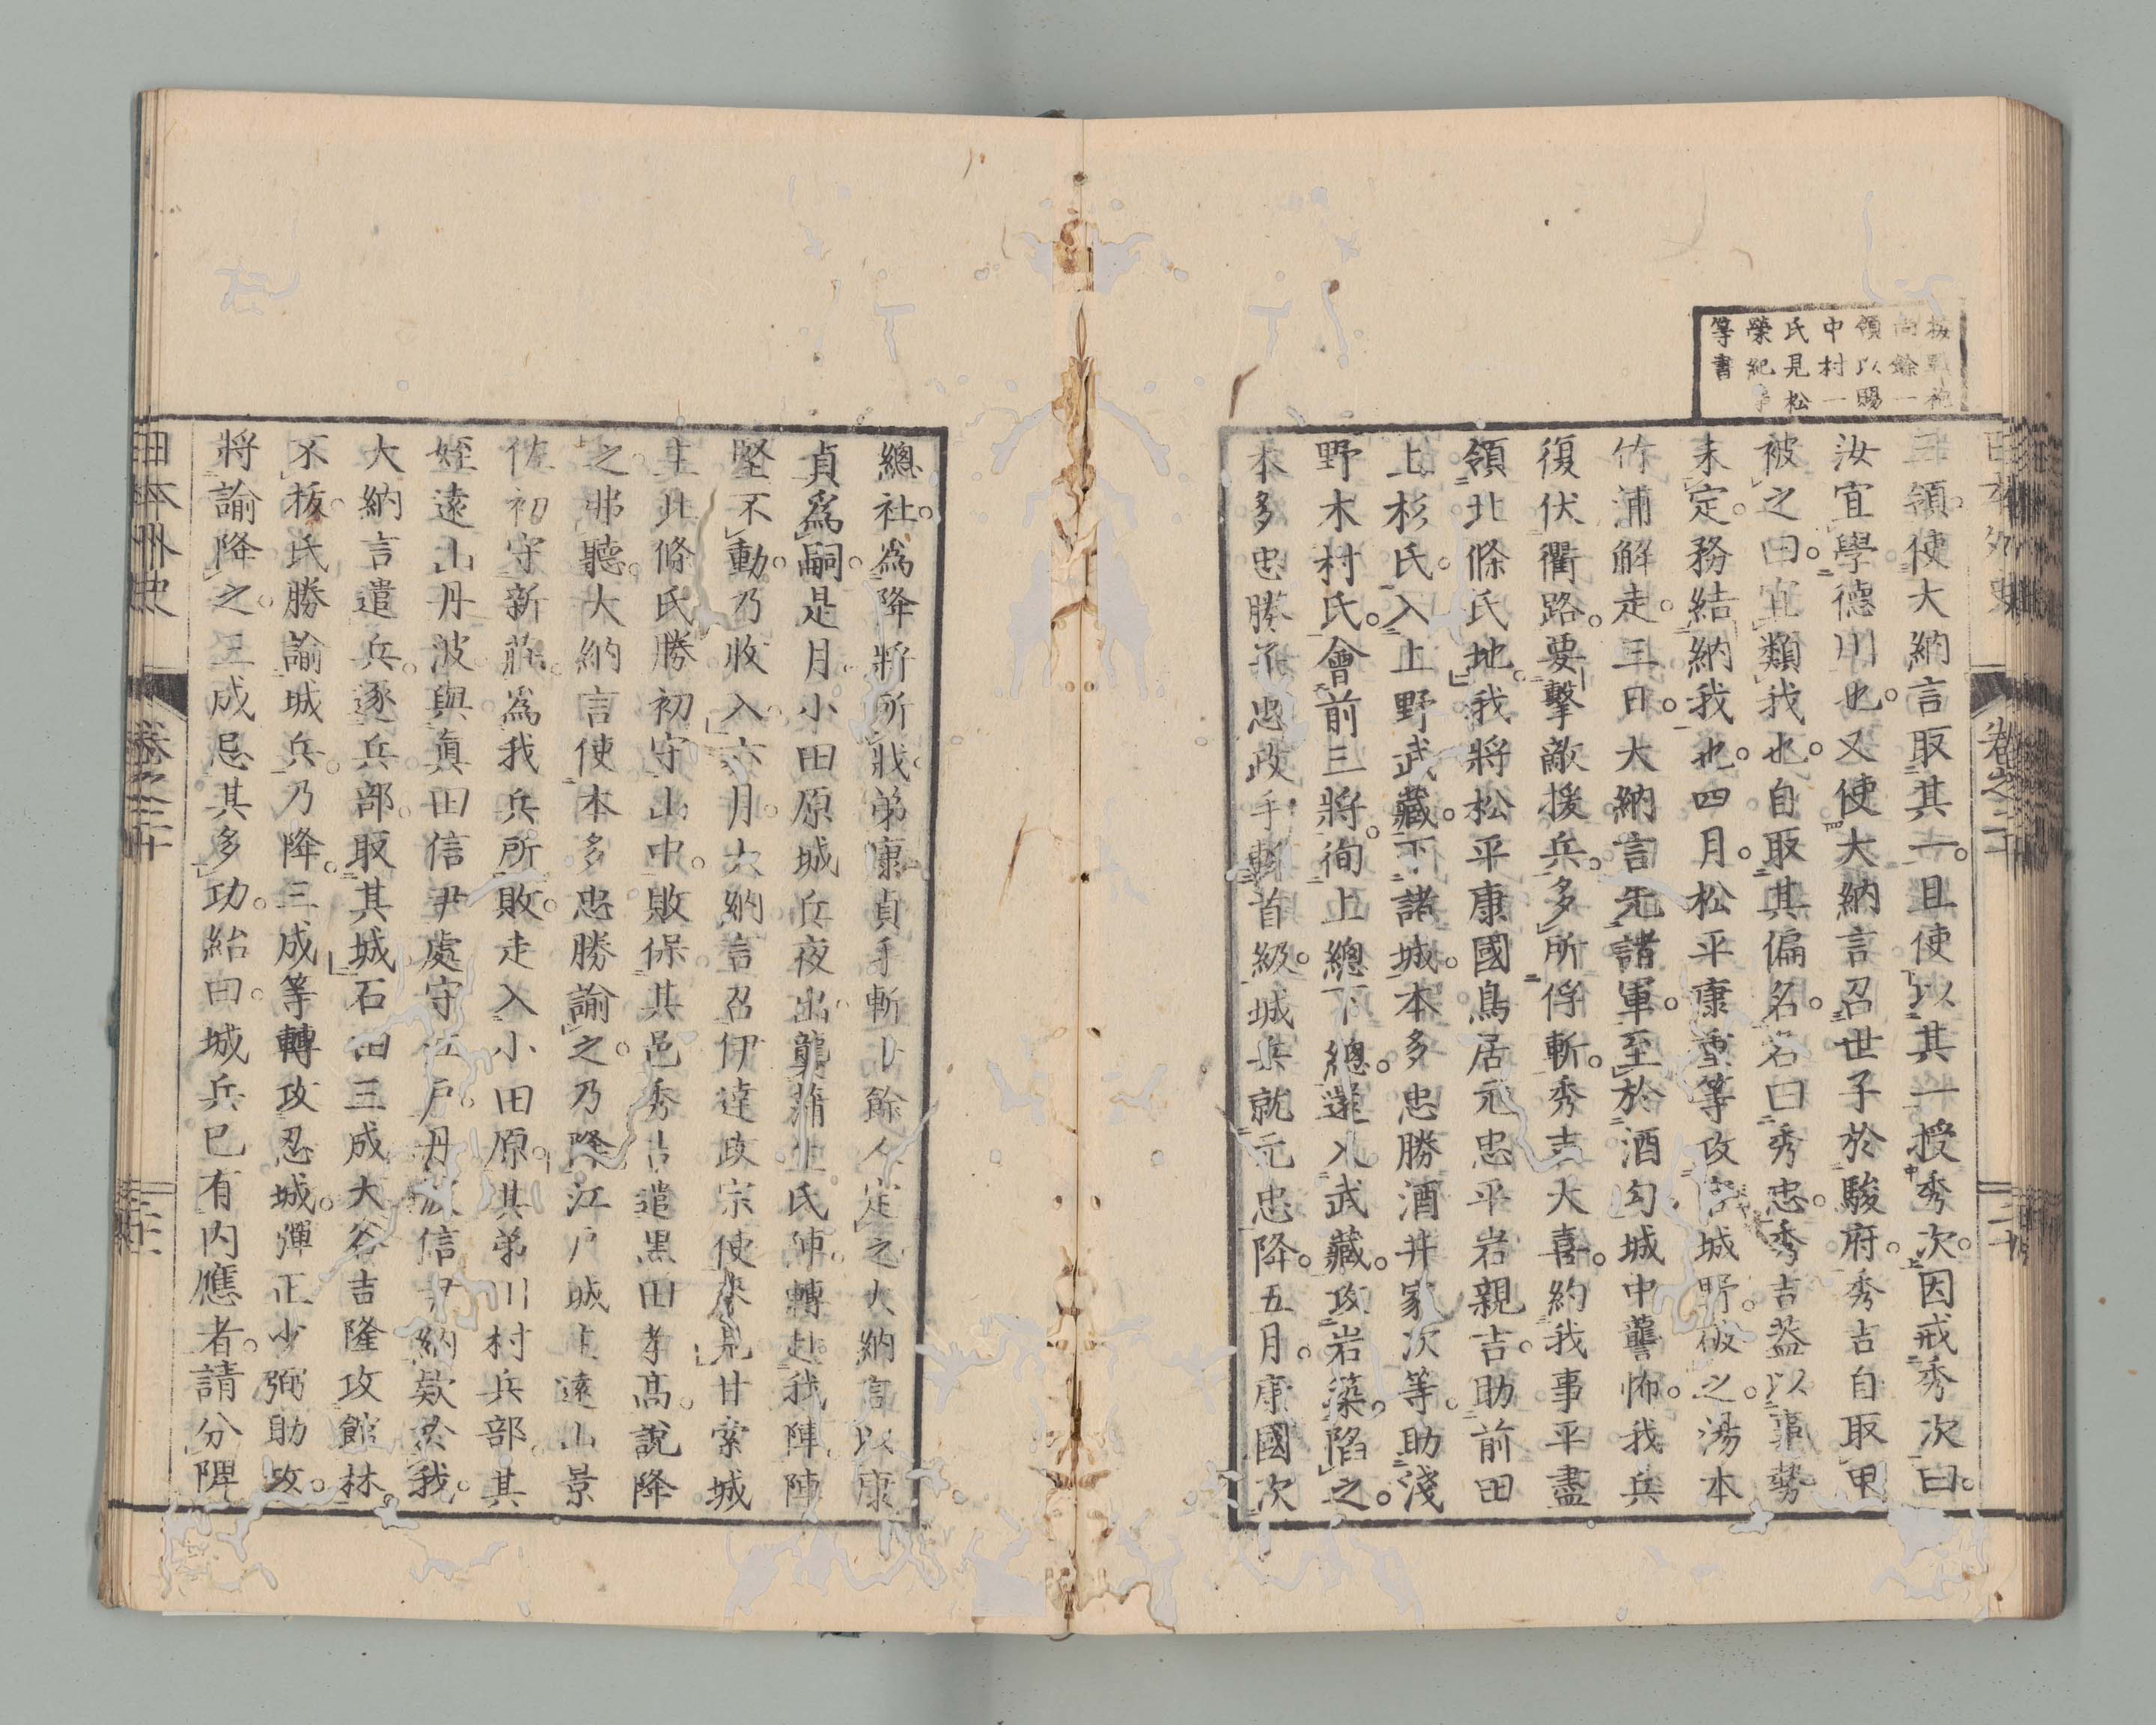 拔戰袍
尚餘一
領以賜
中村一
氏見松
榮紀事
等書
日本外史
卷之二十
三領使大納言取其一且使以其一授秀次因戒秀次曰
汝宜學德川也又使大納言召世子於駿府秀吉自取甲
被之曰宜類我也自取其偏名名曰秀忠秀吉蓋以事勢
未定務結納我也四月松平康重等攻宮城野破之湯本
竹浦解走三日大納言先諸軍至於酒匂城中讋怖我兵
復伏衢路要擊敵援兵多所俘斬秀吉大喜約我事平盡
領北條氏地我將松平康國鳥居元忠平岩親吉助前田
上杉氏入上野武藏下諸城本多忠勝酒井家次等助淺
野木村氏會前三將徇上總下總還入武藏攻岩築陷之
本多忠勝子忠政手斬首級城兵就元忠降五月康國次
總社為降將所戕弟康貞手斬十餘人定之大納言以康
貞為嗣是月小田原城兵夜出襲蒲生氏陣轉赴我陣陣
堅不動乃收入六月大納言召伊達政宗使來見甘索城
主北條氏勝初守山中敗保其邑秀吉遣黑田孝高說降
之弗聽大納言使本多忠勝諭之乃降江戶城主遠山景
佐初守新莊為我兵所敗走入小田原其弟川村兵部其
姪遠山丹波與眞田信尹處守江戶丹波信尹納款於我
大納言遣兵逐兵部取其城石田三成大谷吉隆攻館林
不拔氏勝諭城兵乃降三成等轉攻忍城彈正少弼助攻
將諭降之三成忌其多功紿曰城兵已有内應者請分陴
日本外史
卷之二十